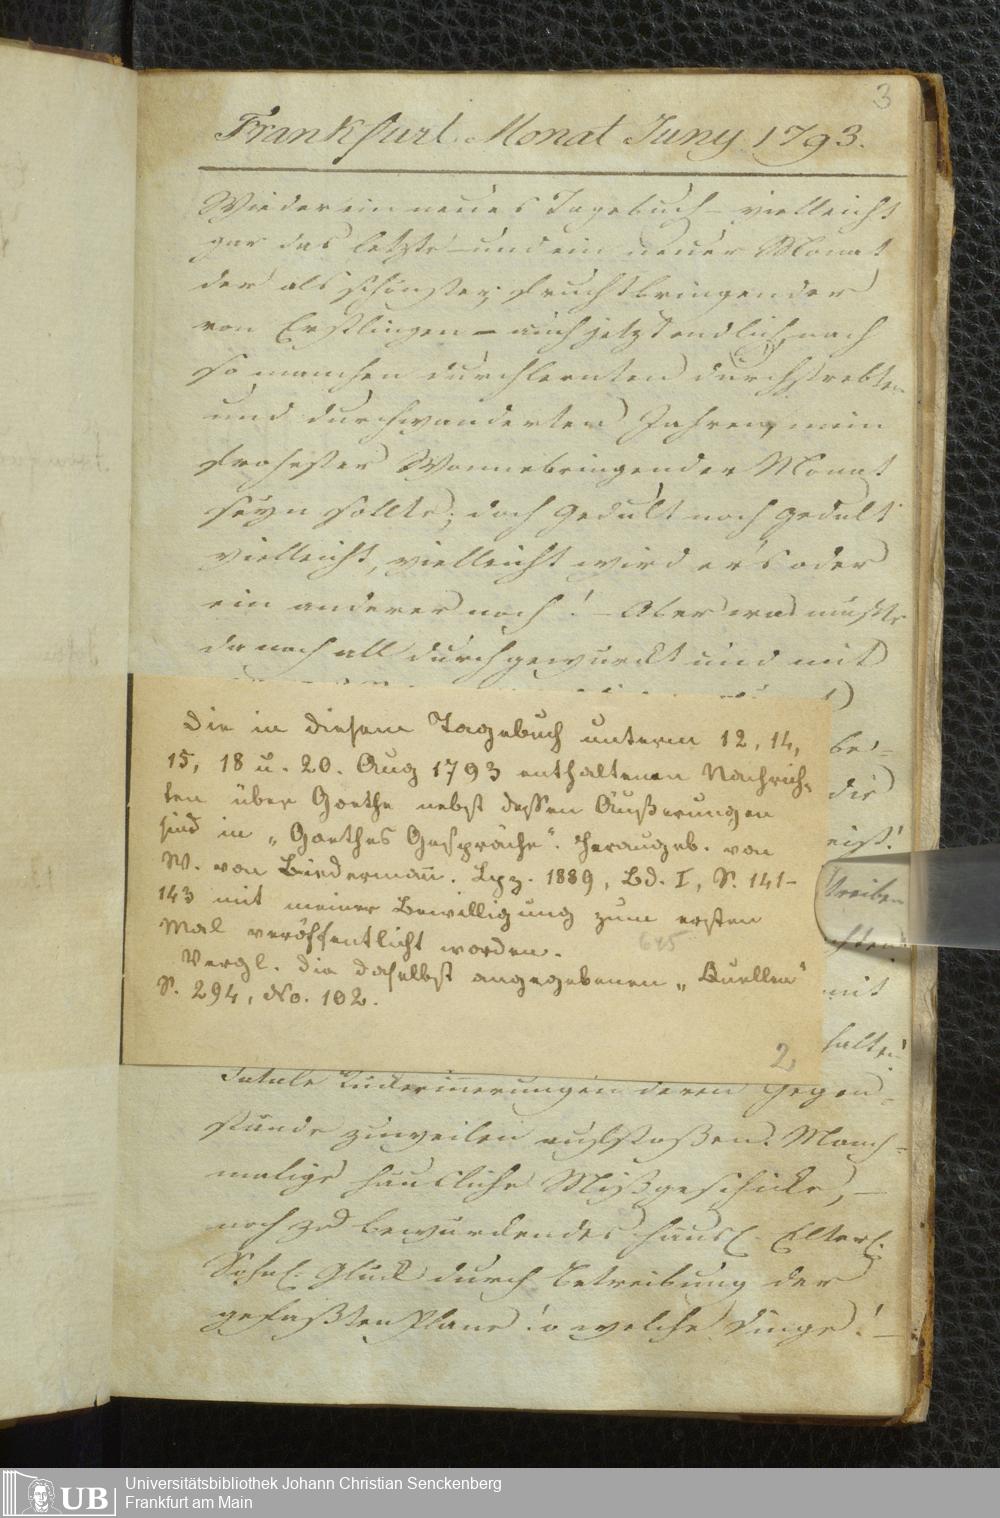 3
Frankfurt. Monat Juny 1793.
Wieder ein neues Tagebuch – vielleicht
gar das letzte – und ein neuer Monat
der als schönster, fruchtbringender
von Erstlingen – auch jetzt endlich, nach
so manchen durchlernten durchstrebten
und durchwanderten Jahren, mein
frohester Wonnebringender Monat
seyn sollte; doch Gedult noch Gedult
vielleicht, vielleicht wird er's oder
ein anderer noch! – Aber was muste
da noch all durchgewürckt und mit
Die in diesem Tagebuch unterm 12, 14,
15, 18 u. 20. Aug 1793 enthaltenen Nachrich-
ten über Goethe nebst dessen Äußerungen
sind in „Goethes Gespräche“. Herausgeb. von
W. von Biedermann. Lpz. 1889, Bd. I, S. 141–
143 mit meiner Bewilligung zum ersten
Mal veröffentlicht worden.
Vergl. die daselbst angegebenen „Quellen“
S. 294, No. 102.
2
die
treiben
mit
Fatale Rückerinnerungen deren Gegen-
stände zuweilen aufstoßen. Manch-
malige häusliche Mißgeschicke, –
noch zu bewürckendes häusl. Elterl.
Sohnl. Glück durch Betreibung der
gefaßten Plane! o welche Dinge! –
UB
Universitätsbibliothek Johann Christian Senckenberg
Frankfurt am Main